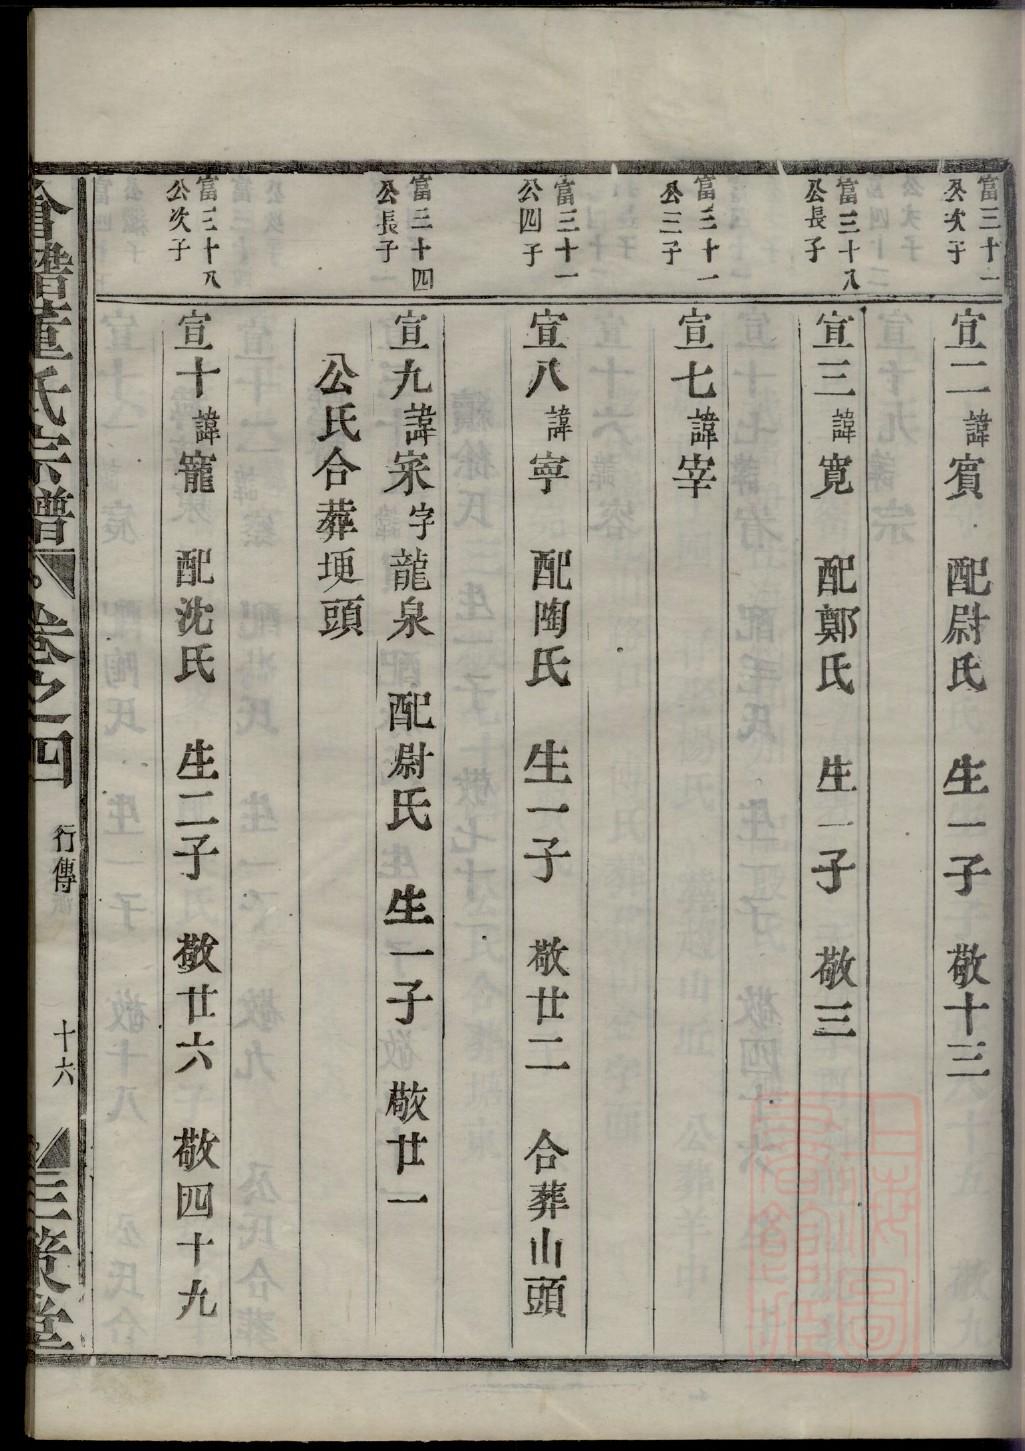 富三十一
公次子
宣二諱賓 配尉氏 生一子 敬十三
富三十八
公長子
宣三諱寬 配鄭氏 生一子 敬三
富三十一
公三子
宣七諱宰
富三十一
公四子
宣八諱寧 配陶氏 生一子 敬廿二 合葬山頭
富三十四
公長子
宣九諱寀字龍泉 配尉氏 生一子 敬廿一
公氏合葬埂頭
富三十八
公次子
宣十諱寵 配沈氏 生二子 敬廿六 敬四十九
會稽董氏宗譜 卷之四 行傳 十六 三策堂